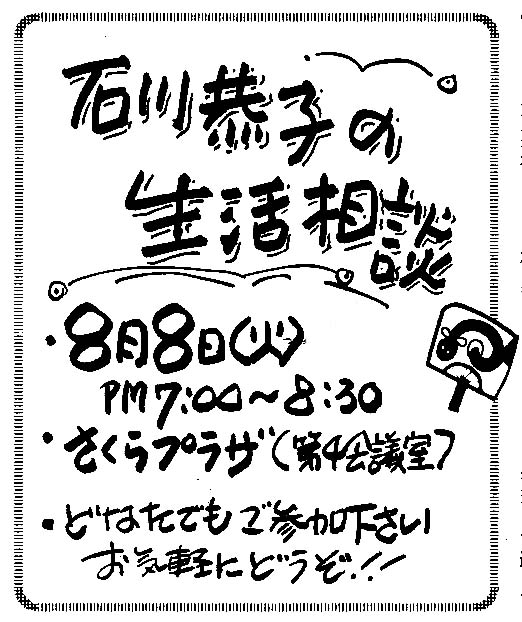 石川恭子の
生活相談
・8月8日(火)
PM7:00〜8:30
・さくらプラザ(第4会議室)
・どなたでもご参加下さい
お気軽にどうぞ!!